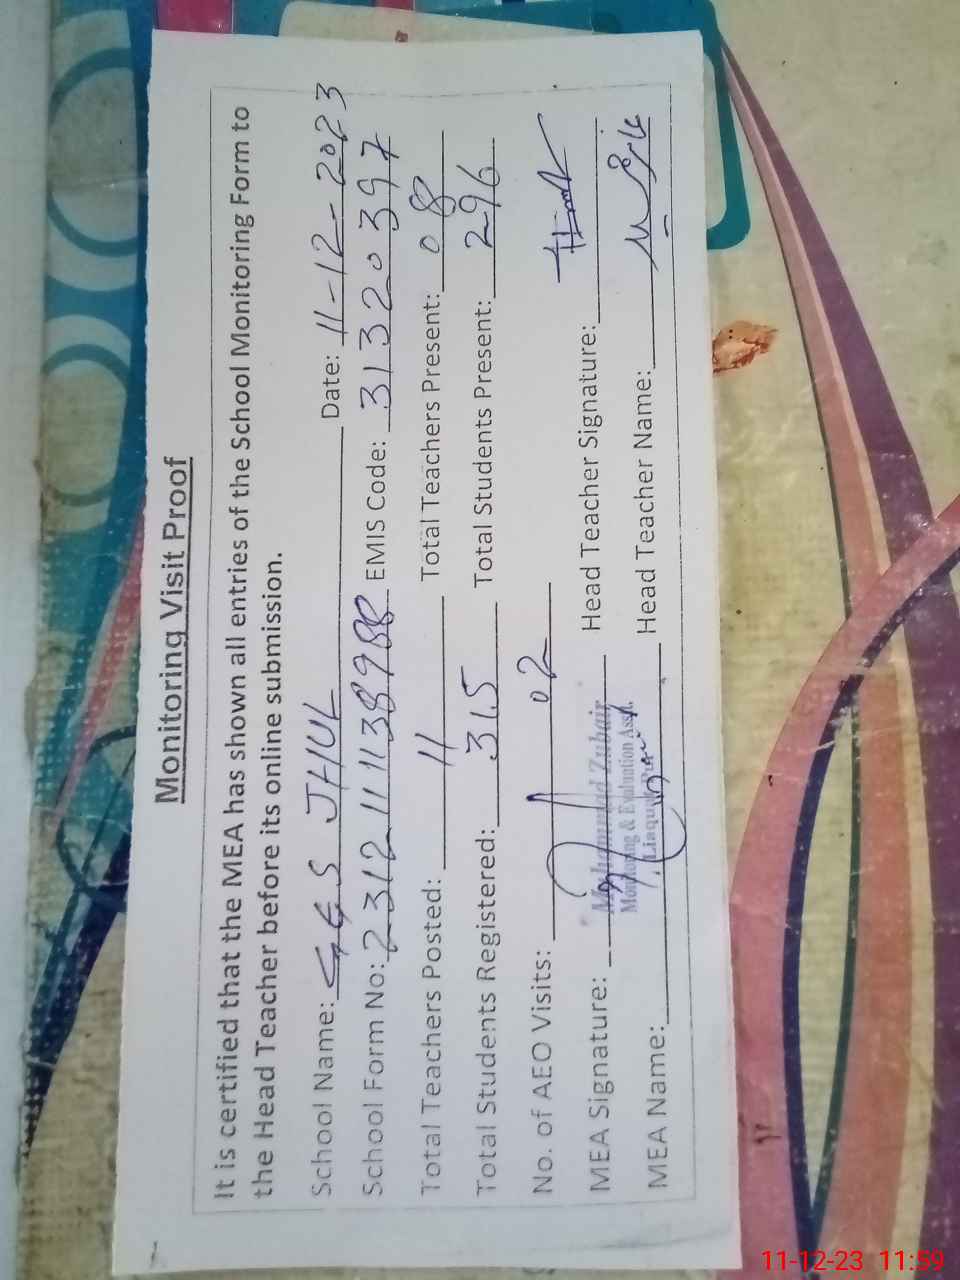 Monitoring Visit Proof
It is certified that the MEA has shown all entries of the School Monitoring Form to
the Head Teacher before its online submission.
School Name: GES JHUL Date: 11-12-2023
School Form No: 2312111138988 EMIS Code: 31320397
Total Teachers Posted: 11 Total Teachers Present: 08
Total Students Registered: 315 Total Students Present: 296
No. of AEO Visits: 02
MEA Signature: Head Teacher Signature:
Muhammad Zubair
Monitoring & Evaluation Asst.
MEA Name: Head Teacher Name:
11-12-23 11:59